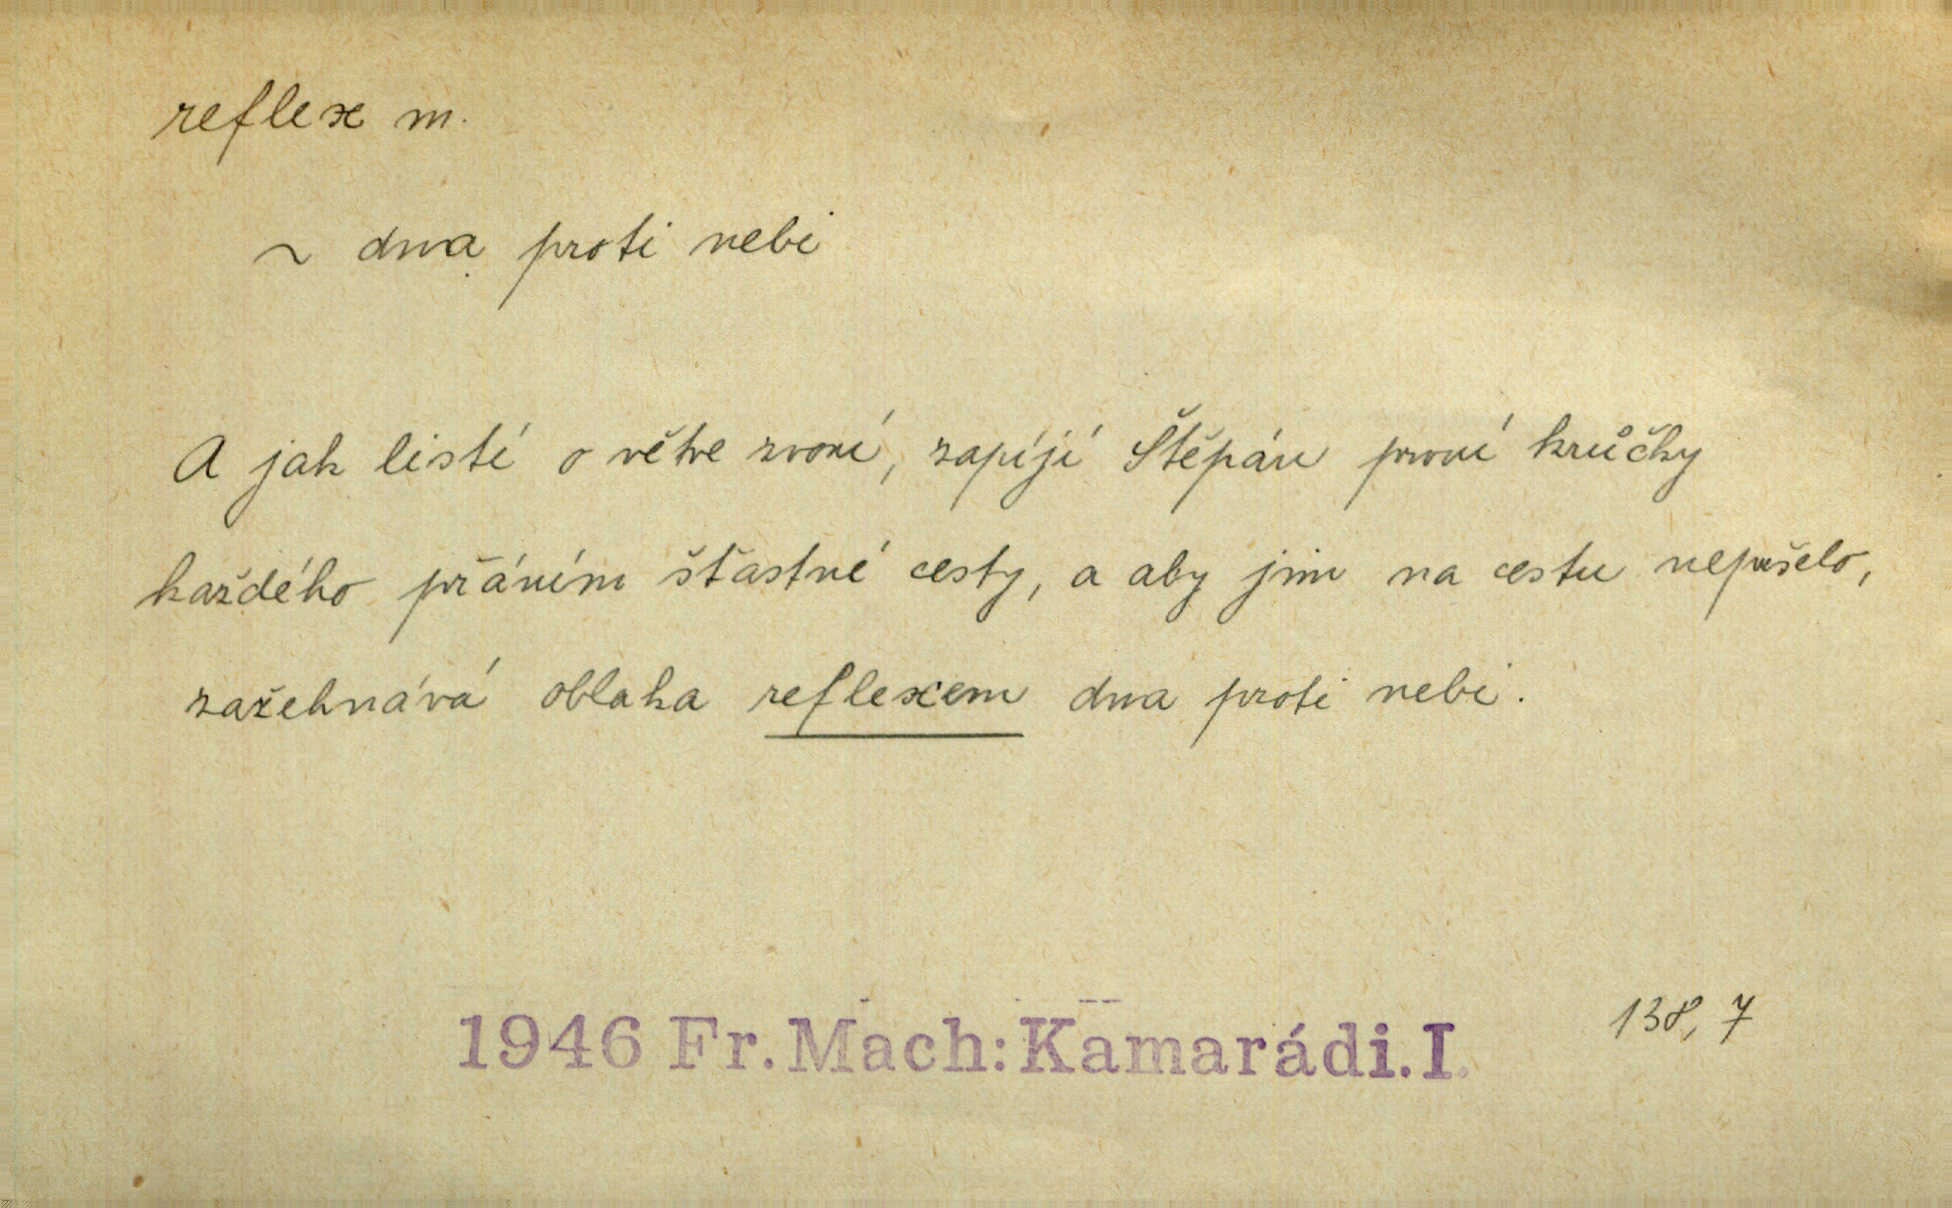 reflex m.
~ dna proti nebi
A jak listí o větve zvoní, zapíjí Štěpán první krůčky
každého přáním šťastné cesty, a aby jim na cestu nepršelo,
zažehnává oblaka reflexem dna proti nebi.
1946 Fr. Mach: Kamarádi. I.
138, 7